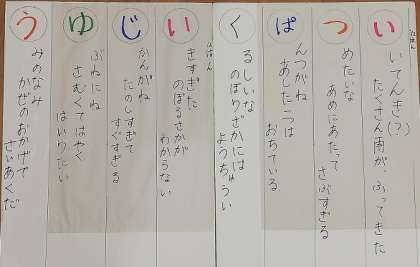 い
いてんき(?)
たくさん雨が、ふってきた
つ
めたいな
あめにあたって
さぶすぎる
ぱ
んつがね
あした二つは
おちている
く
るしいな
のぼりざかには
ようちゅうい
い
きすぎた
のぼるさかが
わからない
じ
かんがね
たのしすぎて
すぐすぎる
ゆ
ぶねにね
さむくてはやく
はいりたい
う
みのなみ
かぜのおかげで
さいあくだ